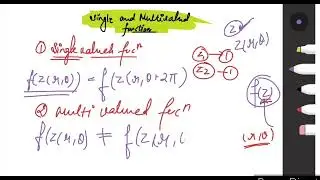 Single and Multivalued
function
① Single valued funcⁿ
f(z(r,θ)) = f(z(r,θ+2π)
② multi valued funcⁿ
f(z(r,θ) ≠ f(z(r,(
z
z(r,θ)
z₁ → 1
z₂ → 1
f(z)
(r,θ)